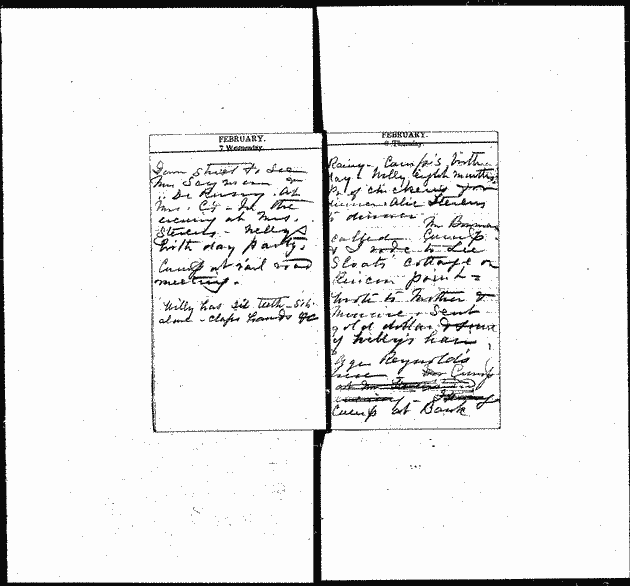 FEBRUARY.
7 Wednesday.
Down street to see
Mrs
Dr At
Mrs. C's - In the
evening at Mrs.
Stevens - Nelly's
birth day party.
Cump at rail road
meeting.
Willy has six teeth - sits
alone - claps hands &c
FEBRUARY.
8 Thursday.
Rainy - Cump's birth
day - Willy eight months
of chickens for
dinner Alice Stevens
to dinner. Mr
called. Cump
& I rode to see
Sloats' cottage on
Rincon point -
Wrote to Mother &
Minnie & sent
gold dollar & some
of Willy's hair.
Reynolds
here Cump
at
evening
Cump at Bank